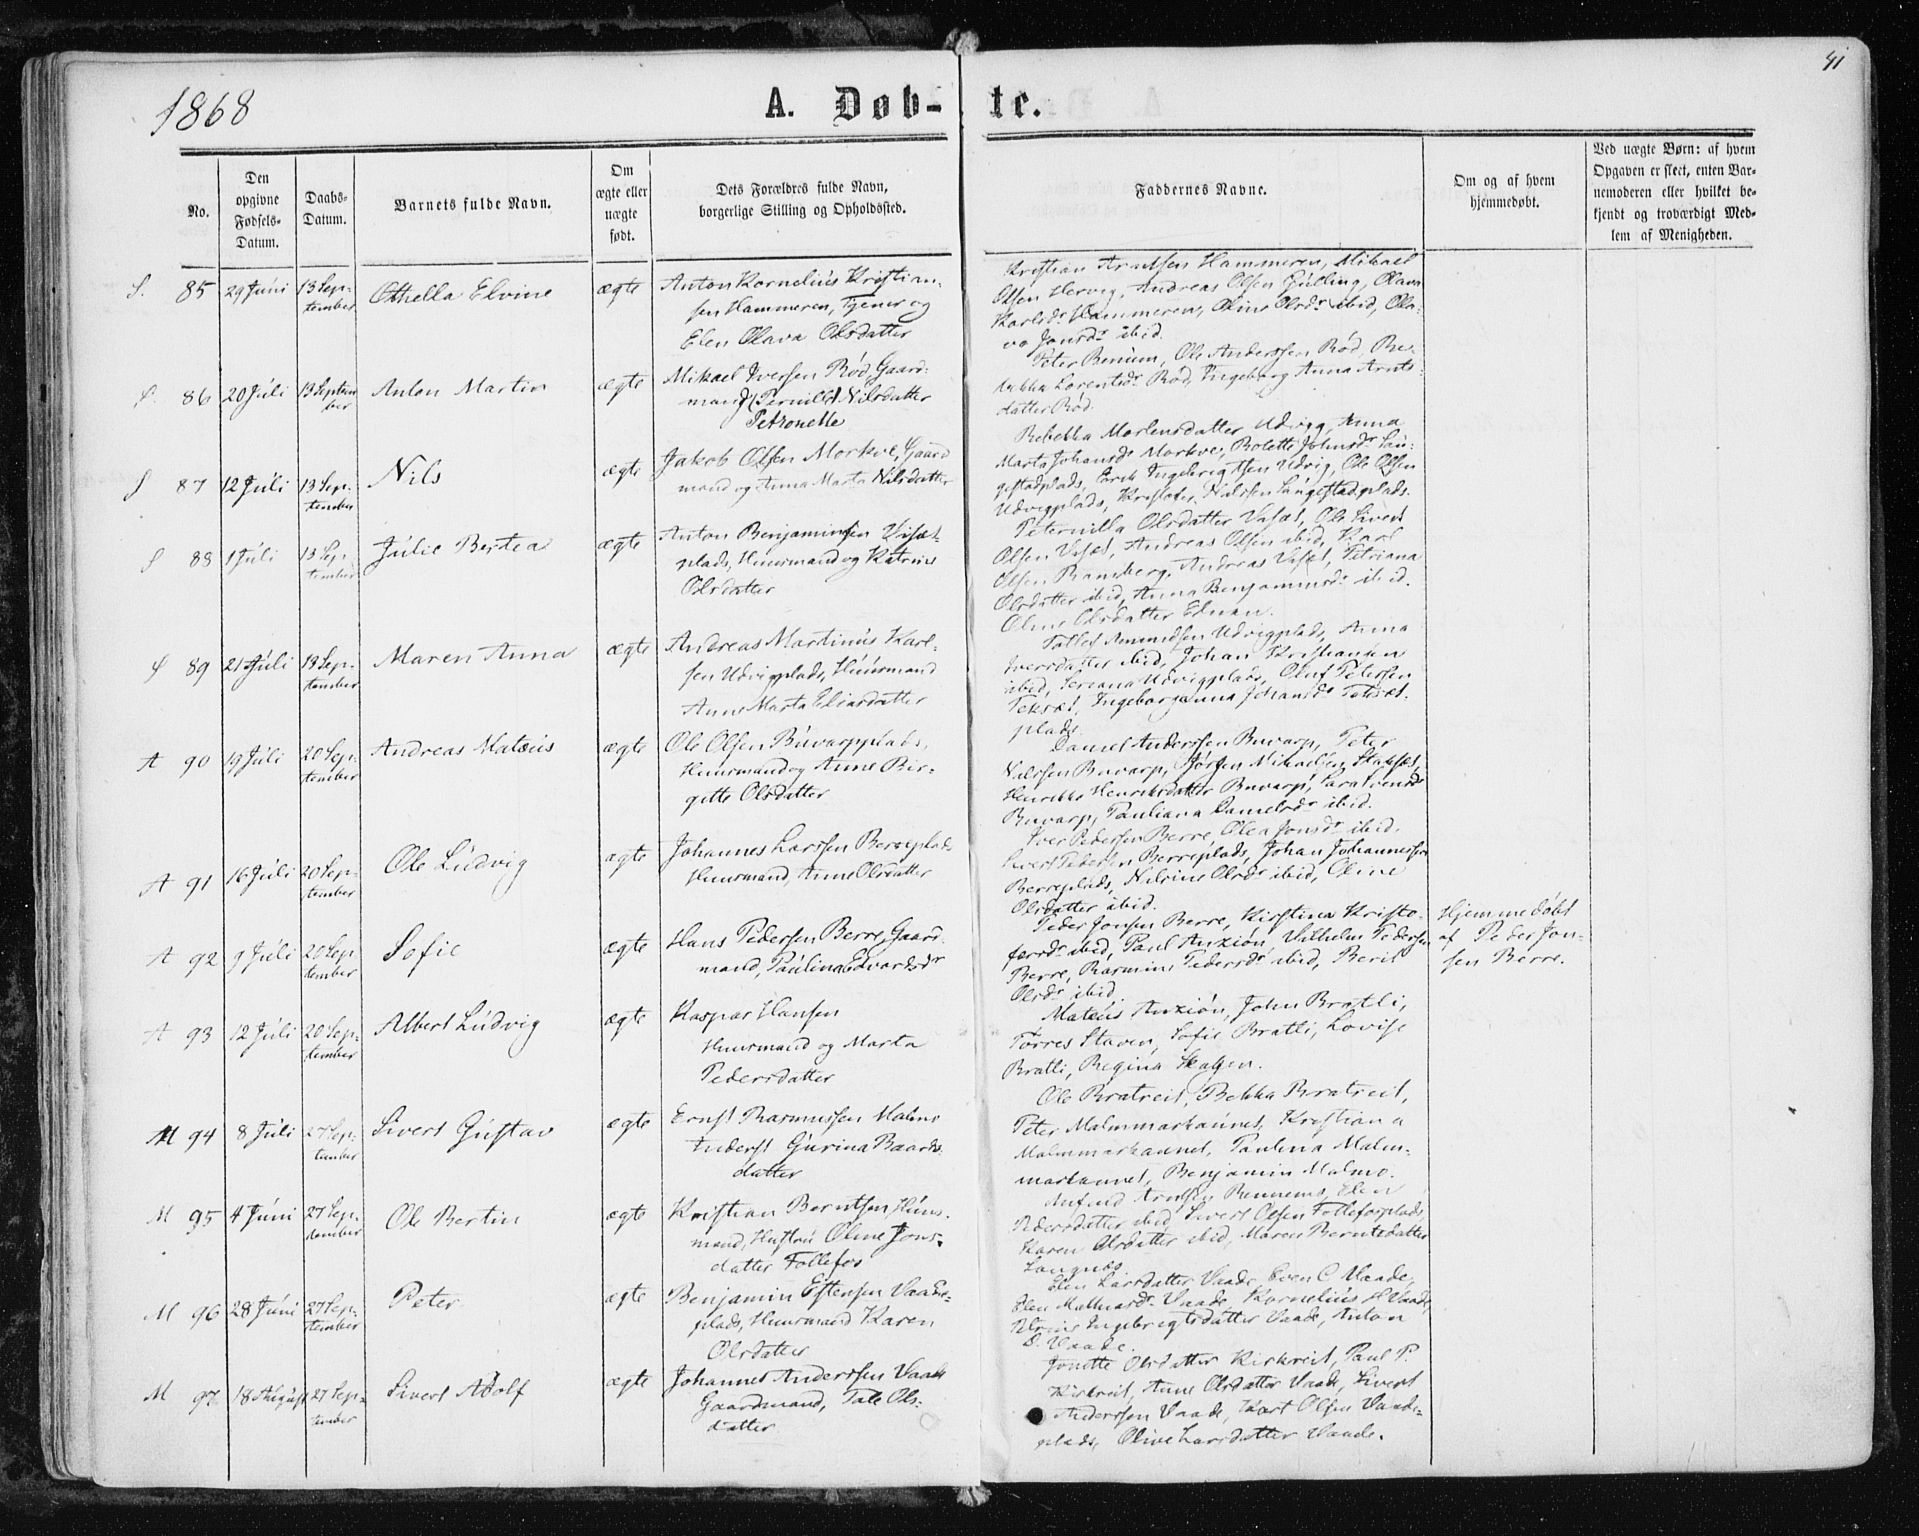 41
1868
A. Døb-
te.
No.
Den
opgivne
Fødsels-
Datum.
Daabs-
Datum.
Barnets fulde Navn.
Om
ægte eller
uægte
født.
Dets Forældres fulde Navn,
borgerlige Stilling og Opholdssted.
Faddernes Navne.
Om og af hvem
hjemmedøbt.
Ved uægte Børn: af hvem
Opgaven er skeet, enten Bar-
nemoderen eller hvilket be-
kjendt og troværdigt Med-
lem af Menigheden.
S. 85 29 Júni 13 Sep-
tember
Othella Elvine
ægte
Anton Kornelius Kristian-
sen Hammeren, Tjener og
Elen Olava Olsdatter
Kristian Arntsen Hammeren, Mikael
Olsen Hervig, Andreas Olsen Gulling, Olava
Karlsdr Hammeren, Oline Olsdr ibid, Ola-
va Jonsdr ibid.
S. 86 20 Júli 13 Septem
ber
Anton Martin
ægte
Mikael Iversen Rød Gaard-
mand (Pernille) Nilsdatter
Petronelle
Peter Benum, Ole Anderssen Rød, Re-
bekka Lorentsdr Rød, Ingeborg Anna Arnts-
datter Rød.
S 87 12 Júli 13 Sep-
tember
Nils
ægte
Jakob Olsen Morkve, Gaard
mand og Anna Marta Nilsdatter
Rebekka Mortensdatter Udvigg, Anna
Marta Johansdr Morkve, Bolette Johnsdr Lan-
gestadplads, Ingebrigtsen Udvig, Ole Olsen
Udvigplads, Kristofer Nilssen Langestadplads.
S 88 1 Júli 13 Sep-
tember
Júlie Bertea
ægte
Anton Benjaminsen Viset-
plads, Huusmand og Katrine
Olsdatter
Peternilla Olsdatter Viset, Ole Sivert
Olsen Viset, Andreas Olsen ibid, Karl
Olsen Ramberg, Andreas Viset, Petriana
Olsdatter ibid, Anna Benjaminsdr ibid.
Oline Olsdatter
S 89 21 Júli 13 Sep-
tember
Maren Anna
ægte
Andreas Martinús Karl-
sen Udvigplads, Húúsmand
Anne Marta Eliasdatter
Amundsen Udvigplads, Anna
Iversdatter ibid, Johan Kristiansen
ibid, Seriana Udvigplads, Oluf Petersen
Ingeborganna Johansdr
plads.
A 90 19 Júli 20 Sep-
tember
Andreas Mateús
ægte
Ole Olsen Búvarpplads,
Huusmand og Anne Bir-
gitte Olsdatter
Daniel Anderssen Buvarp, Peter
Nilssen Buvarp, Jørgen Mikaelsen
Henrikke Henriksdatter Buvarp, Sara
Buvarp, Pauliana Danielsdr ibid.
A 91 16 Júli 20 Sep-
tember
Ole Lúdvig
ægte
Johannes Larssen Berreplads
Huusmand, Anne Olsdatter
Iver Pedersen Berre, Olea Jonsdr ibid.
Sivert Pedersen Berreplads, Johan Johannessen
Berreplads, Nilsine Olsdr ibid, Oline
Olsdatter ibid.
A 92 9 Júli 20 Sep
tember
Sofie
ægte
Hans Pedersen Berre, Gaard-
mand, Paulina Edvardsdr
Peder Jonsen Berre, Kirstina Kristo-
fersdr ibid, Paul Anxión, Vilhelm Pedersen
Berre, Rasmine Pedersdr ibid, Berit
Olsdr ibid.
Hjemmedøbt
af Peder Jon-
sen Berre.
A 93 12 Júli 20 Sep-
tember
Albert Lúdvig
ægte
Kaspar Hansen
Huusmand og Marta
Pedersdatter
Mateus Anxión, John Bratli,
Torres Staven, Sofie Bratli, Lovise
Bratli, Regina Skagen.
M 94 8 Júli 27 Sep-
tember
Sivert Gústav
ægte
Ernst Rasmussen Malmo
Inderst Gúrina Baards-
datter
Ole Bratreit, Bekka Bratreit,
Peter Malmmarkaunet, Kristiana
Malmmarkaunet, Paulina Malm-
markaunet, Benjamin Malmo.
M 95 4 Júni 27 Sep-
tember
Ole Bertin
ægte
Kristian Berntsen Húús-
mand, Hústrú Oline Jons-
datter Follefos
Anfind Arntsen Rennemo, Elen
Pedersdatter ibid, Sivert Olsen Follefosplads
Karen Olsdatter ibid, Maren Berntsdatter
Langnæs.
M 96 28 Júni 27 Sep-
tember
Peter
ægte
Benjamin Estensen Vaade-
plads, Huusmand Karen
Olsdatter
Elen Larsdatter Vaade, Even C Vaade,
Elen Vaade, Kornelius H Vaade,
Ingebrigtsdatter Vaade, Anton
D. Vaade.
M 97 18 August 27 Sep-
tember
Sivert Adolf
ægte
Johannes Anderssen Vaade
Gaardmand, Tale Ols-
datter
Jonette Olsdatter Kirkreit, Paul P.
Kirkreit, Anne Olsdatter Vaade, Sivert
Anderssen Vaade, Kort Olsen Vaade-
plads, Olive Larsdatter Vaade.